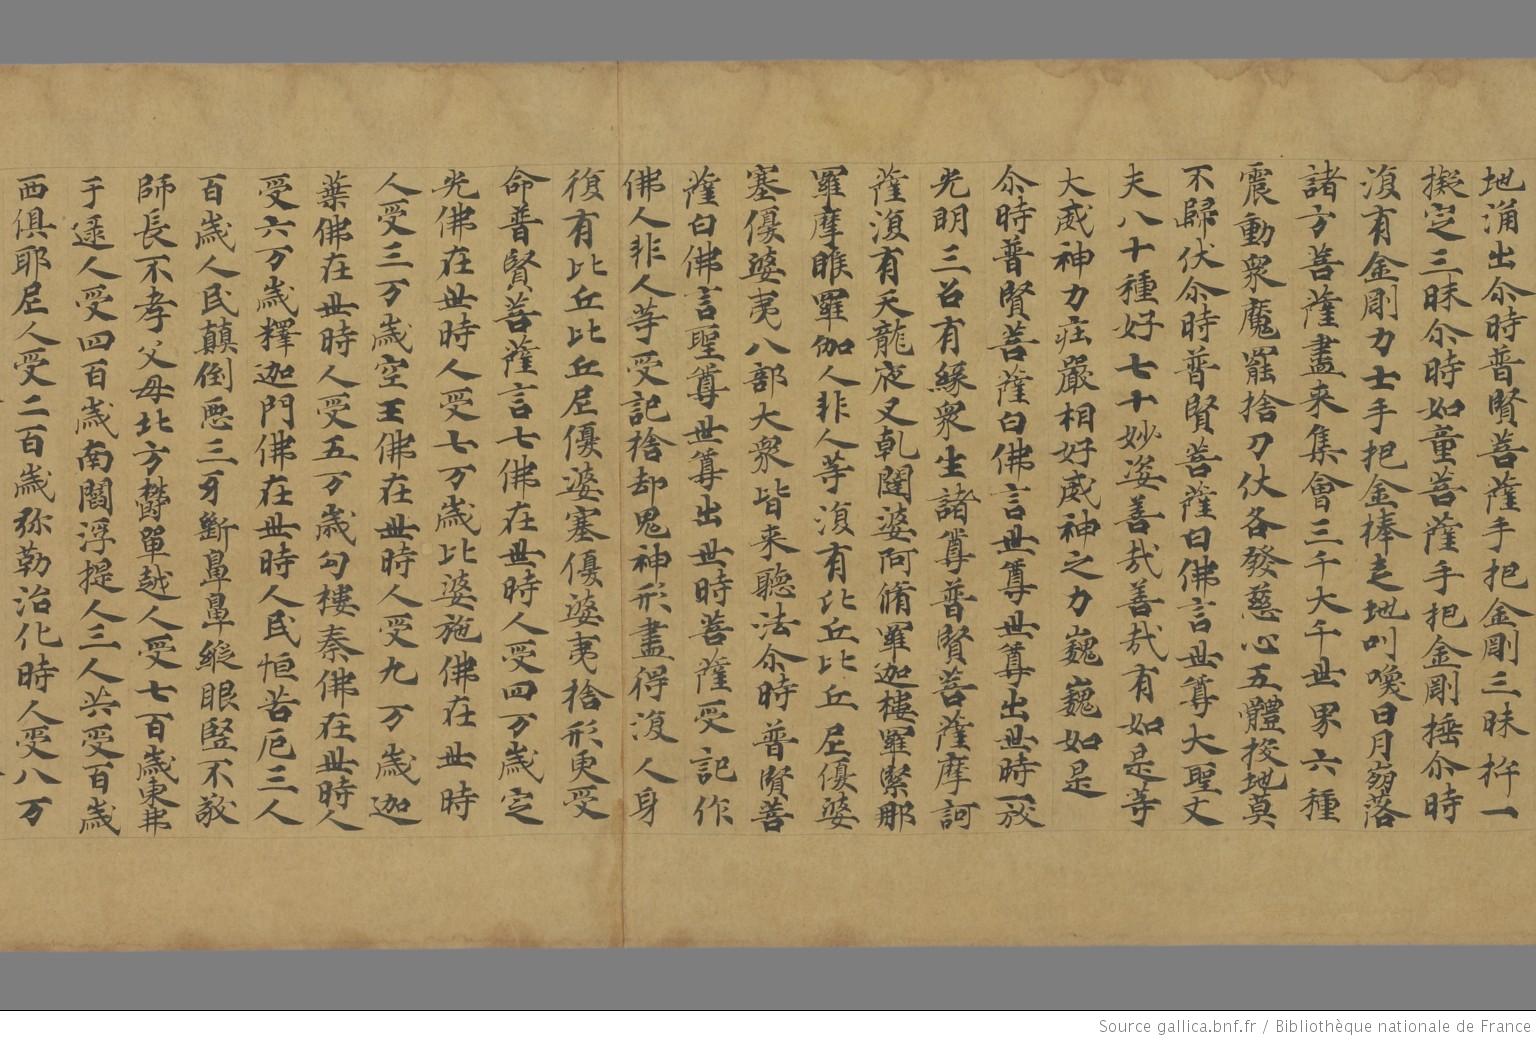 地涌出尒時普賢菩薩手把金剛三昧杵一
擬定三昧尒時如童菩薩手把金剛捶尒時
復有金剛力士手把金棒走地叫喚日月崩落
諸方菩薩盡来集會三千大千世界六種
震動衆魔罷捨刀仗各發慈心五體投地莫
不歸伏尒時普賢菩薩白佛言世尊大聖丈
夫八十種好七十妙姿善哉善哉有如是等
大威神力莊嚴相好威神之力巍巍如是
尒時普賢菩薩白佛言世尊世尊出世時一放
光明三召有緣衆生諸尊普賢菩薩摩訶
薩復有天龍夜叉乹闥婆阿脩羅迦樓羅緊那
羅摩睺羅伽人非人等復有比丘比丘尼優婆
塞優婆夷八部大衆皆来聽法尒時普賢菩
薩白佛言聖尊世尊出世時菩薩受記作
佛人非人等受記捨却鬼神形盡得復人身
復有比丘比丘尼優婆塞優婆夷捨形更受
命普賢菩薩言七佛在世時人受四万歲定
光佛在世時人受七万歲比婆施佛在世時
人受三万歲空王佛在世時人受九万歲迦
葉佛在世時人受五万歲勾樓秦佛在世時人
受六万歲釋迦門佛在世時人民恒苦厄三人
百歲人民顛倒惡三牙斷鼻皐縱眼竪不敬
師長不孝父母北方欝單越人受七百歲東弗
于逮人受四百歲南閻浮提人三人共受百歲
西俱耶尼人受二百歲弥勒治化時人受八万